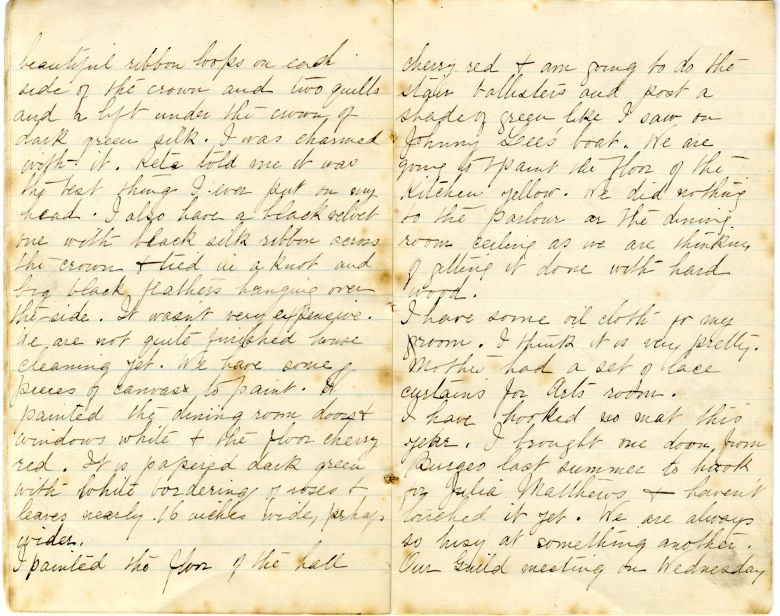 beautiful ribbon loops on each
side of the crown and two quills
and a lift under the crown of
dark green silk. I was charmed
with it. Reta told me it was
the best thing I ever put on my
head. I also have a black velvet
one with black silk ribbon across
the crown & tied in a knot and
big black feathers hanging over
the side. It wasn't very expensive.
We are not quite finished house
cleaning yet. We have some
pieces of canvas to paint. I
painted the dining room doors &
windows white & the floor cherry
red. It is papered dark green
with white bordering of roses &
leaves nearly 16 inches wide, perhaps
wider.
I painted the floor of the hall
cherry red & am going to do the
stair ballisters and post a
shade of green like I saw on
Johnny Lee's boat. We are
going to paint the floor of the
Kitchen yellow. We did nothing
to the parlour or the dining
room ceiling as we are thinking
of getting it done with hard
wood.
I have some oil cloth for my
room. I think it is very pretty.
Mother had a set of lace
curtains for Arts room.
I have hooked no mat this
year. I brought one down from
Burgeo last summer to hook
for Julia Matthews & haven't
touched it yet. We are always
so busy at something another.
Our Guild meeting on Wednesday